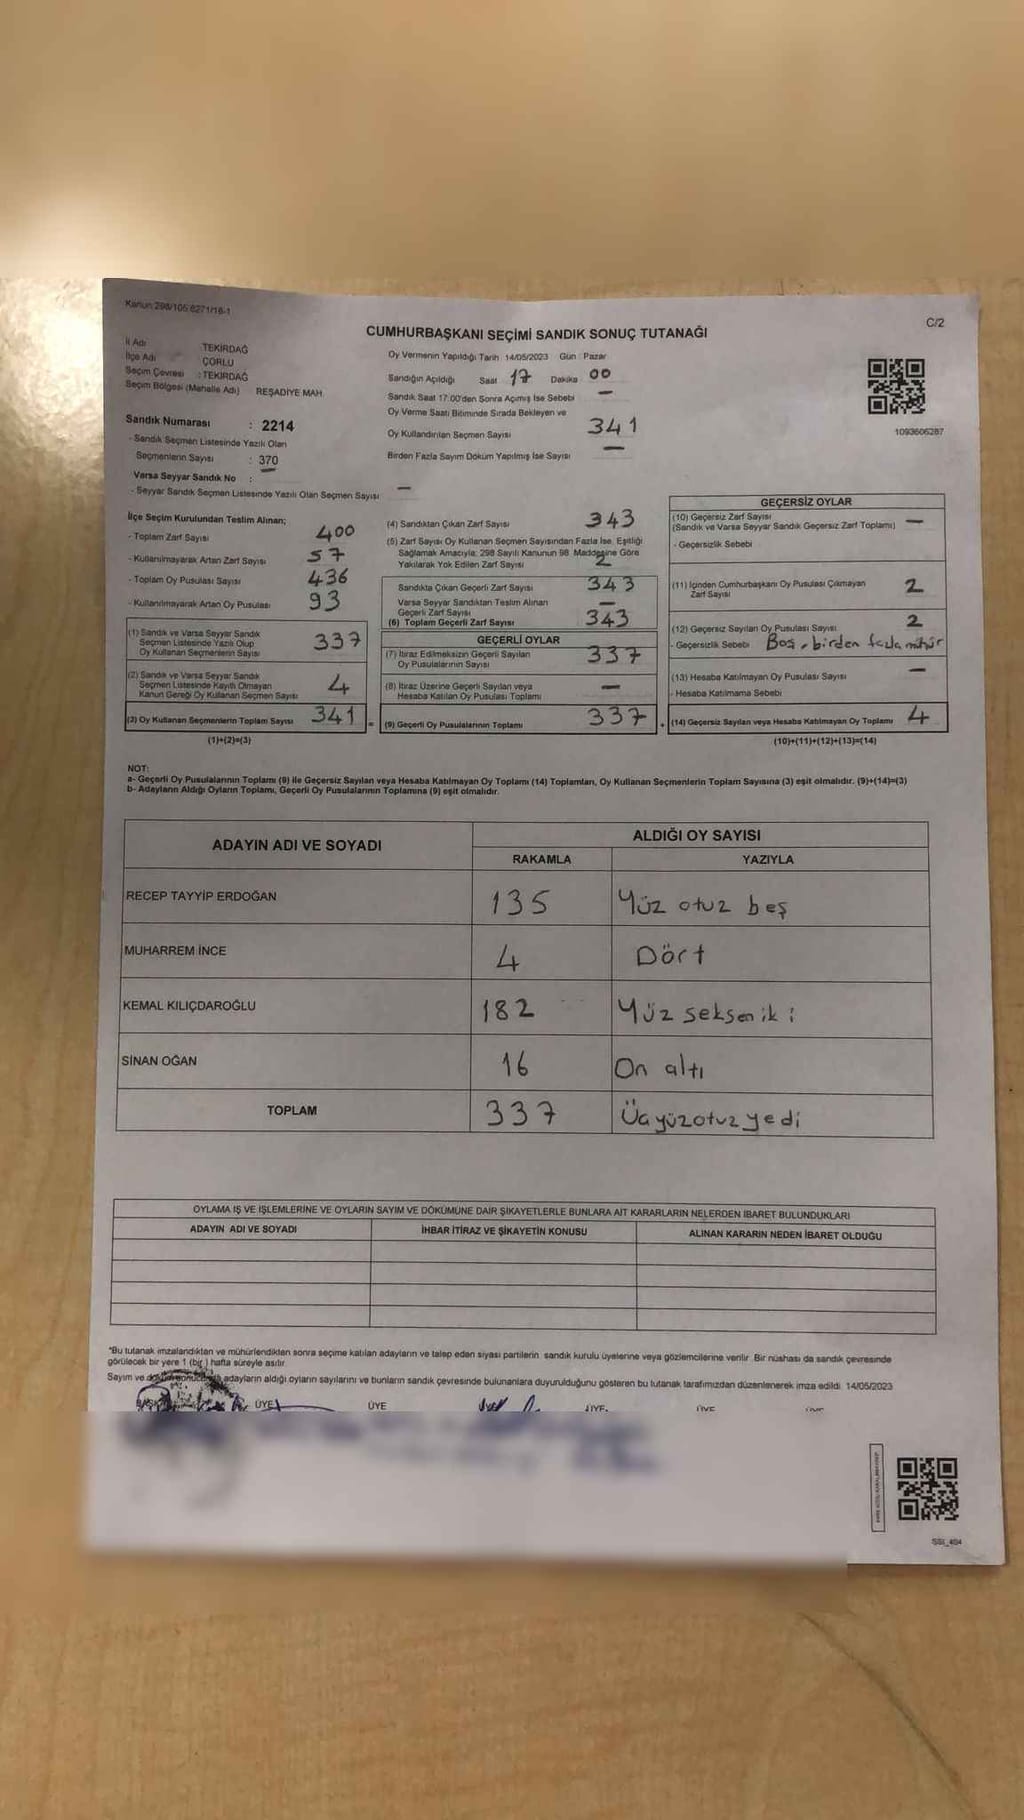 Kanun:298/105;6271/16-1
C/2
CUMHURBAŞKANI SEÇİMİ SANDIK SONUÇ TUTANAĞI
İl Adı TEKİRDAĞ
İlçe Adı ÇORLU
Seçim Çevresi : TEKİRDAĞ
Seçim Bölgesi (Mahalle Adı) REŞADİYE MAH
Sandık Numarası : 2214
- Sandık Seçmen Listesinde Yazılı Olan
Seçmenlerin Sayısı : 370
Varsa Seyyar Sandık No : —
- Seyyar Sandık Seçmen Listesinde Yazılı Olan Seçmen Sayısı —
Oy Vermenin Yapıldığı Tarih 14/05/2023 Gün Pazar
Sandığın Açıldığı Saat 17 Dakika 00
Sandık Saat 17:00'den Sonra Açımış İse Sebebi —
Oy Verme Saati Bitiminde Sırada Bekleyen ve
Oy Kullandırılan Seçmen Sayısı 341
Birden Fazla Sayım Döküm Yapılmış İse Sayısı —
1093606287
İlçe Seçim Kurulundan Teslim Alınan;
- Toplam Zarf Sayısı 400
- Kullanılmayarak Artan Zarf Sayısı 57
- Toplam Oy Pusulası Sayısı 436
- Kullanılmayarak Artan Oy Pusulası 93
(1) Sandık ve Varsa Seyyar Sandık
Seçmen Listesinde Yazılı Olup
Oy Kullanan Seçmenlerin Sayısı 337
(2) Sandık ve Varsa Seyyar Sandık
Seçmen Listesinde Kayıtlı Olmayan
Kanun Gereği Oy Kullanan Seçmen Sayısı 4
(3) Oy Kullanan Seçmenlerin Toplam Sayısı 341
(1)+(2)=(3)
(4) Sandıktan Çıkan Zarf Sayısı 343
(5) Zarf Sayısı Oy Kullanan Seçmen Sayısından Fazla İse, Eşitliği
Sağlamak Amacıyla; 298 Sayılı Kanunun 98. Maddesine Göre
Yakılarak Yok Edilen Zarf Sayısı 2
Sandıkta Çıkan Geçerli Zarf Sayısı 343
Varsa Seyyar Sandıktan Teslim Alınan
Geçerli Zarf Sayısı —
(6) Toplam Geçerli Zarf Sayısı 343
GEÇERLİ OYLAR
(7) İtiraz Edilmeksizin Geçerli Sayılan
Oy Pusulalarının Sayısı 337
(8) İtiraz Üzerine Geçerli Sayılan veya
Hesaba Katılan Oy Pusulası Toplamı —
= (9) Geçerli Oy Pusulalarının Toplamı 337 +
GEÇERSİZ OYLAR
(10) Geçersiz Zarf Sayısı
(Sandık ve Varsa Seyyar Sandık Geçersiz Zarf Toplamı) —
- Geçersizlik Sebebi
(11) İçinden Cumhurbaşkanı Oy Pusulası Çıkmayan
Zarf Sayısı 2
(12) Geçersiz Sayılan Oy Pusulası Sayısı 2
- Geçersizlik Sebebi Boş, birden fazla mühür
(13) Hesaba Katılmayan Oy Pusulası Sayısı —
- Hesaba Katılmama Sebebi
(14) Geçersiz Sayılan veya Hesaba Katılmayan Oy Toplamı 4
(10)+(11)+(12)+(13)=(14)
NOT:
a- Geçerli Oy Pusulalarının Toplamı (9) ile Geçersiz Sayılan veya Hesaba Katılmayan Oy Toplamı (14) Toplamları, Oy Kullanan Seçmenlerin Toplam Sayısına (3) eşit olmalıdır. (9)+(14)=(3)
b- Adayların Aldığı Oyların Toplamı, Geçerli Oy Pusulalarının Toplamına (9) eşit olmalıdır.
ADAYIN ADI VE SOYADI ALDIĞI OY SAYISI
RAKAMLA YAZIYLA
RECEP TAYYİP ERDOĞAN 135 Yüz otuz beş
MUHARREM İNCE 4 Dört
KEMAL KILIÇDAROĞLU 182 Yüz seksen iki
SİNAN OĞAN 16 On altı
TOPLAM 337 Üçyüzotuzyedi
OYLAMA İŞ VE İŞLEMLERİNE VE OYLARIN SAYIM VE DÖKÜMÜNE DAİR ŞİKAYETLERLE BUNLARA AİT KARARLARIN NELERDEN İBARET BULUNDUKLARI
ADAYIN ADI VE SOYADI İHBAR İTİRAZ VE ŞİKAYETİN KONUSU ALINAN KARARIN NEDEN İBARET OLDUĞU
*Bu tutanak imzalandıktan ve mühürlendikten sonra seçime katılan adayların ve talep eden siyasi partilerin sandık kurulu üyelerine veya gözlemcilerine verilir. Bir nüshası da sandık çevresinde
görülecek bir yere 1 (bir) hafta süreyle asılır.
Sayım ve döküm sonucunda adayların aldığı oyların sayılarını ve bunların sandık çevresinde bulunanlara duyurulduğunu gösteren bu tutanak tarafımızdan düzenlenerek imza edildi. 14/05/2023
ÜYE ÜYE ÜYE ÜYE
SSI_404